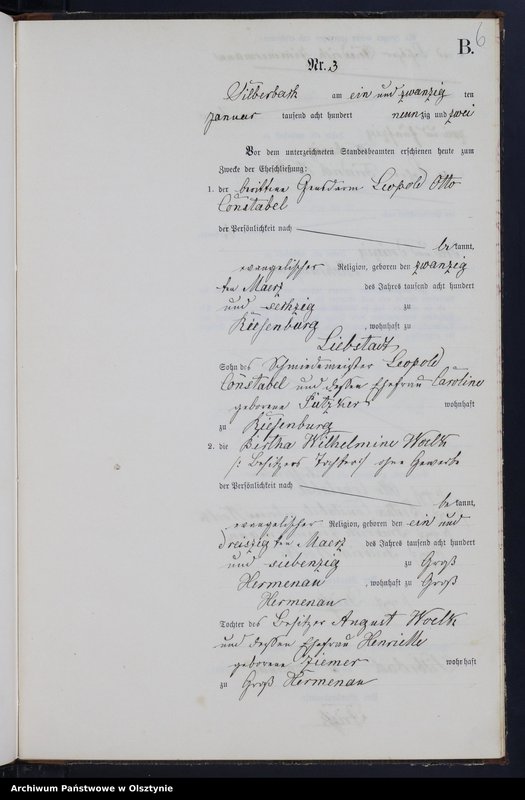 6
B.
Nr. 3
Silberbach am ein und zwanzig ten
Januar tausend acht hundert neunzig und zwei
Vor dem unterzeichneten Standesbeamten erschienen heute zum
Zwecke der Eheschließung:
1. der berittene Gensdarm Leopold Otto
Constabel
der Persönlichkeit nach
bekannt,
evangelischer Religion, geboren den zwanzig
ten Maerz des Jahres tausend acht hundert
und sechzig zu
Riesenburg, wohnhaft zu
Liebstadt
Sohn des Schmiedemeister Leopold
Constabel und dessen Ehefrau Caroline
geborene wohnhaft
zu Riesenburg
2. die Bertha Wilhelmine Woelk
/: Besitzers Tochter :/ ohne Gewerbe
der Persönlichkeit nach
bekannt,
evangelischer Religion, geboren den ein und
dreiszigten Maerz des Jahres tausend acht hundert
und siebenzig zu Groß
Hermenau, wohnhaft zu Groß
Hermenau
Tochter des Besitzer August Woelk
und dessen Ehefrau Henriette
geborene Ziemer wohnhaft
zu Groß Hermenau
Archiwum Państwowe w Olsztynie